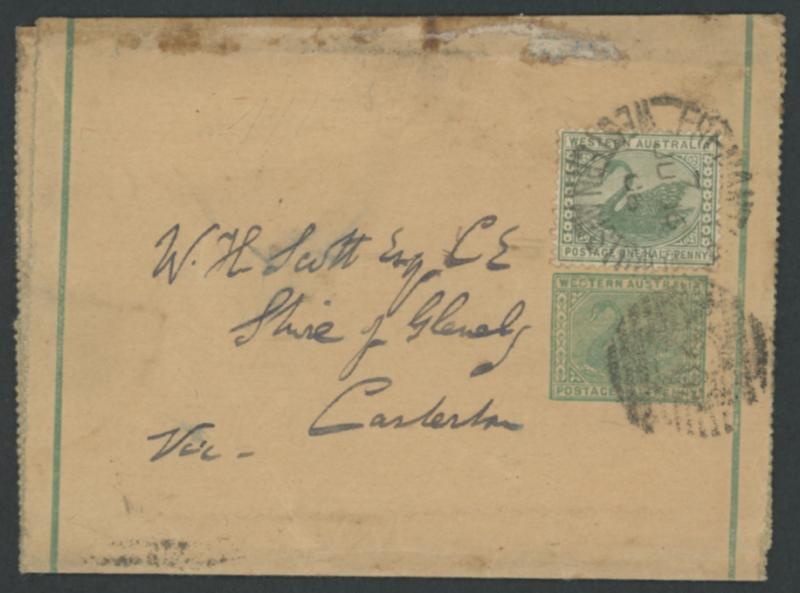 WESTERN AUSTRALIA
POSTAGE ONE HALF-PENNY
WESTERN AUSTRALIA
POSTAGE
W. H. Scott Esq C E
Shire of Glenelg
Casterton
Vic -